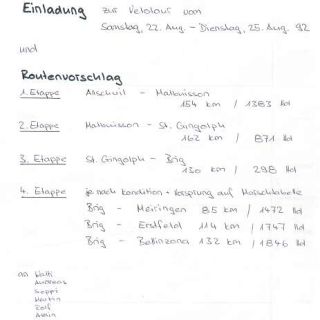 Einladung zur Velotour vom
Samstag, 22. Aug. - Dienstag, 25. Aug. 92
und
Routenvorschlag
1. Etappe Allschwil - Malbuisson
154 km / 1383 Hm
2. Etappe Malbuisson - St. Gingolph
162 km / 871 Hm
3. Etappe St. Gingolph - Brig
130 km / 298 Hm
4. Etappe je nach Kondition + Vorsprung auf Marschtabelle
Brig - Meiringen 85 km / 1472 Hm
Brig - Erstfeld 114 km / 1747 Hm
Brig - Bellinzona 132 km / 1846 Hm
an
Andreas
Seppi
Martin
Rolf